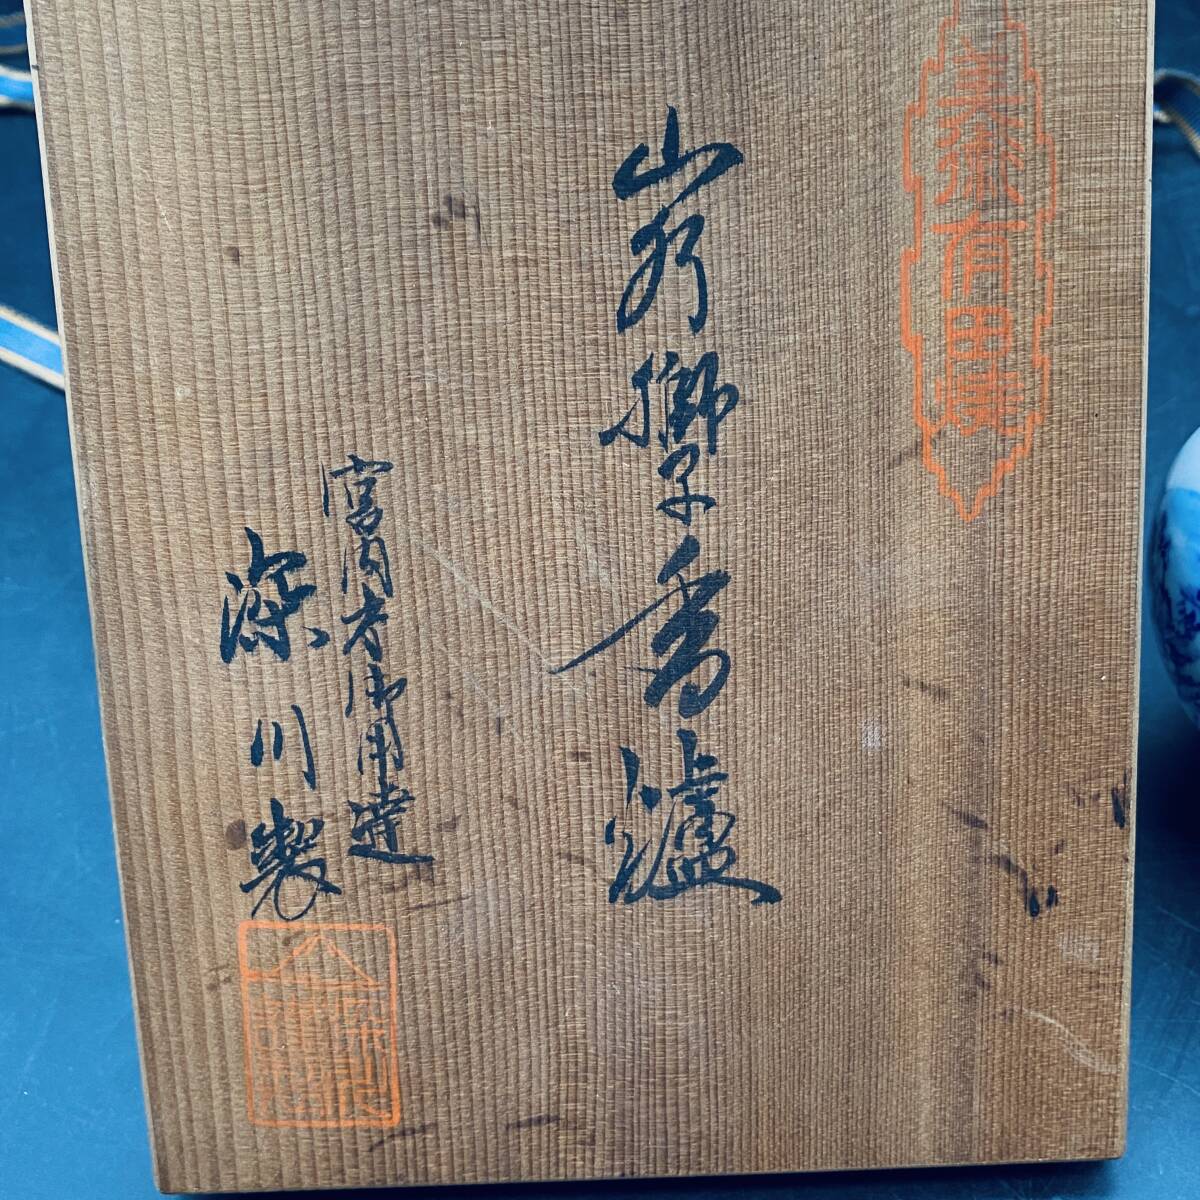 美術有田焼
山水獅子香爐
宮内省御用達
深川製